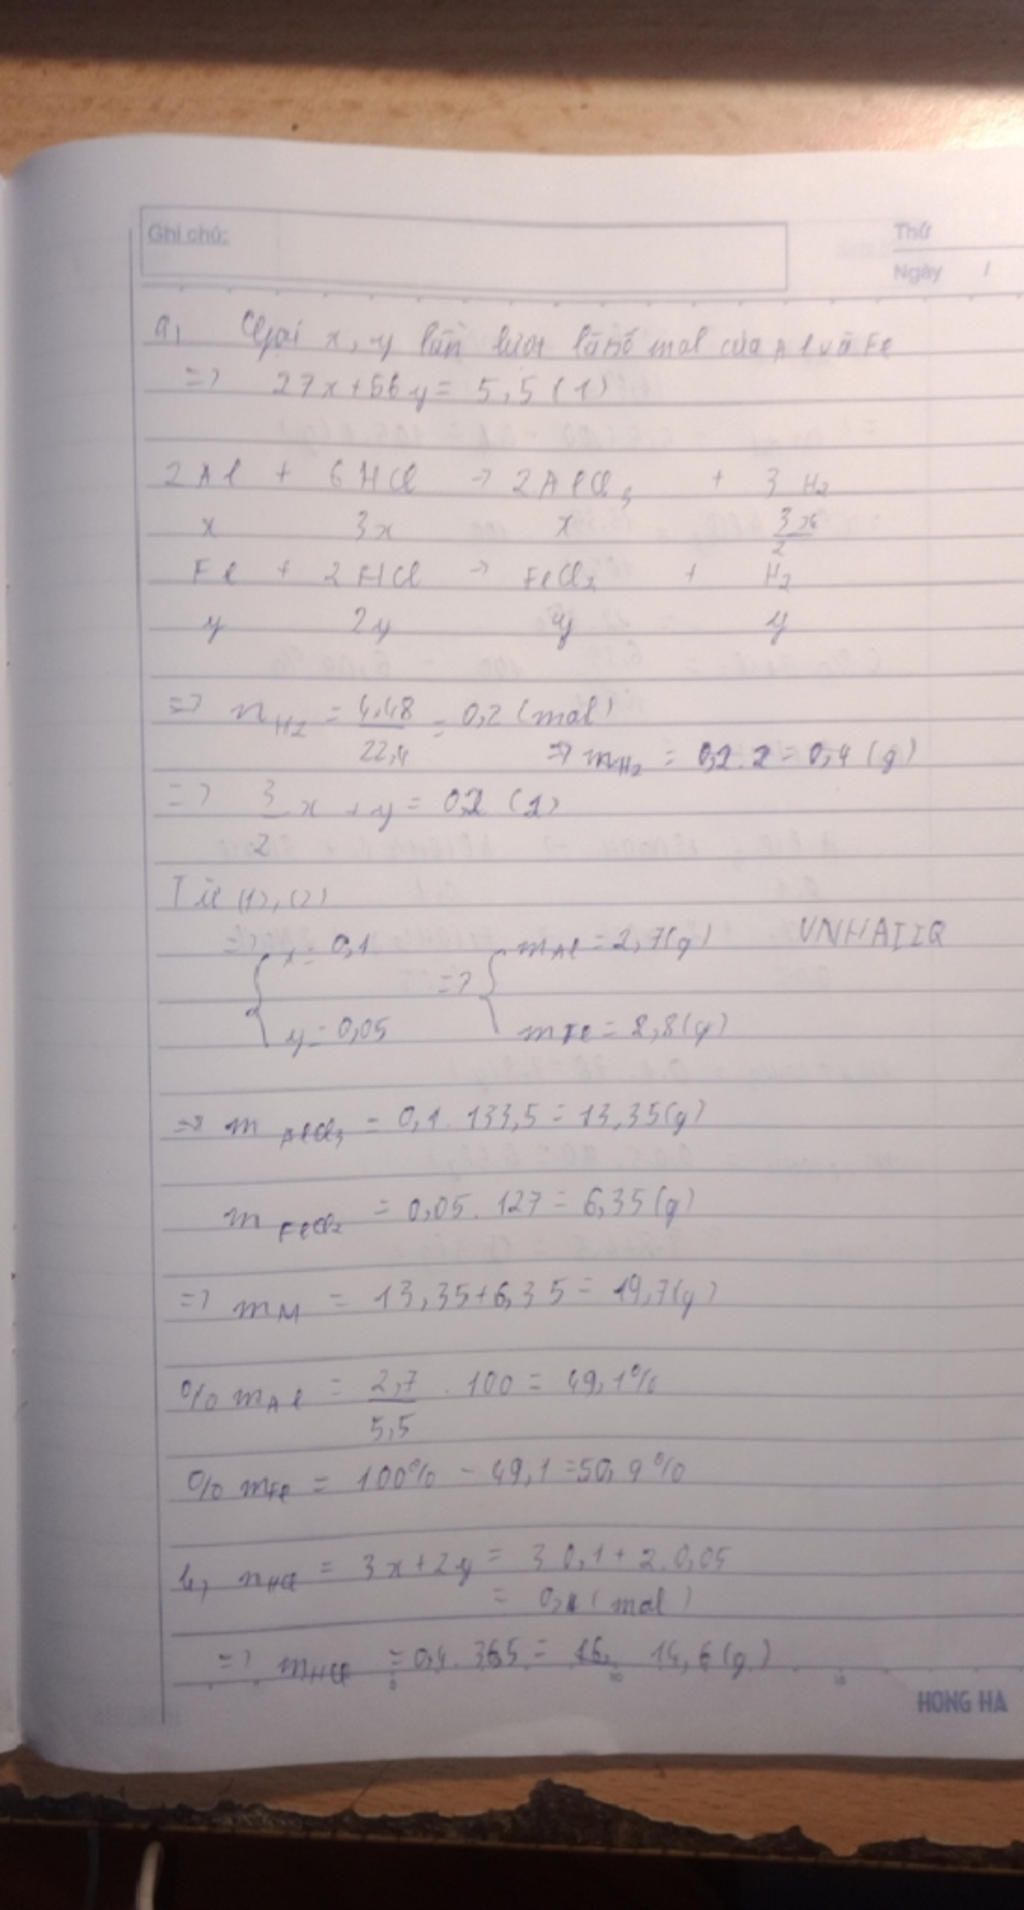 Ghi chú:
Thứ
Ngày /
a, Gọi x, y lần lượt là số mol của Al và Fe
=> 27x+56y = 5,5 (1)
2Al + 6HCl -> 2AlCl3 + 3H2
x 3x x 3x/2
Fe + 2HCl -> FeCl2 + H2
y 2y y y
=> nH2 = 4,48/22,4 = 0,2 (mol)
=> mH2 = 0,2.2 = 0,4 (g)
=> 3/2 x + y = 0,2 (2)
Từ (1), (2)
=> { x = 0,1 => { mAl = 2,7(g) VNHAIIQ
y = 0,05 mFe = 2,8(g)
=> mAlCl3 = 0,1. 133,5 = 13,35(g)
mFeCl2 = 0,05. 127 = 6,35(g)
=> mM = 13,35+6,35 = 19,7(g)
% mAl = 2,7/5,5 . 100 = 49,1%
% mFe = 100% - 49,1 = 50,9%
b, nHCl = 3x+2y = 3 0,1 + 2.0,05
= 0,4 (mol)
=> mHCl = 0,4. 36,5 = 14,6 (g)
HONG HA